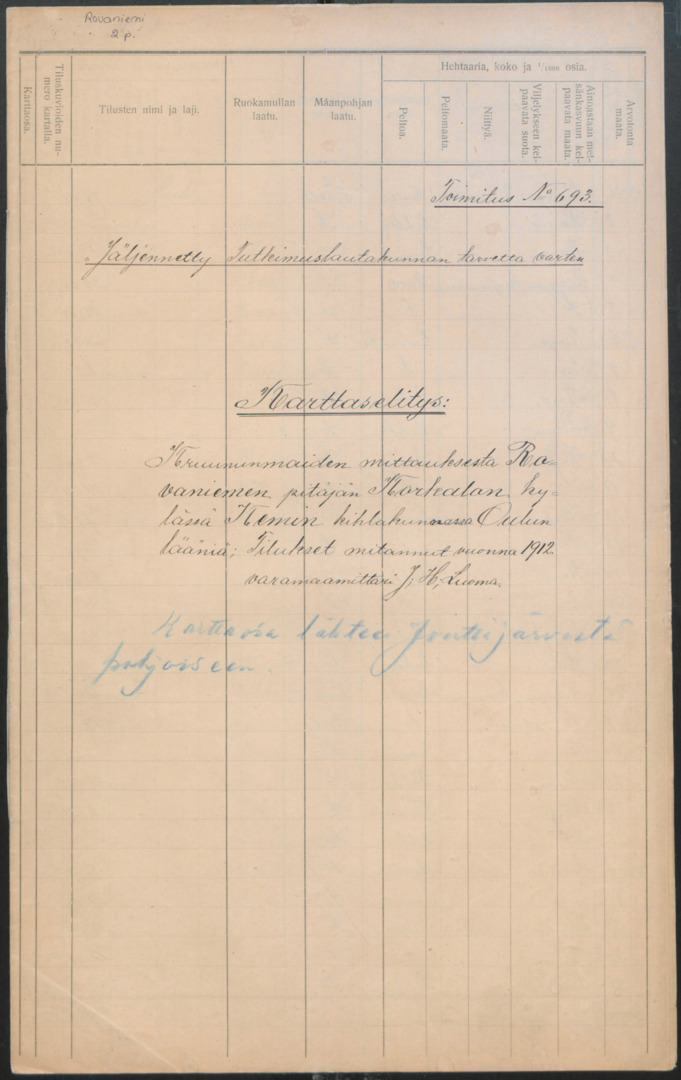 Rovaniemi
2 p.
Hehtaaria, koko ja 1/1000 osia.
Karttaosa.
Tiluskuvioiden nu-
mero kartalla.
Tilusten nimi ja laji.
Ruokamullan
laatu.
Maanpohjan
laatu.
Peltoa.
Peltomaata.
Niittyä.
Viljelykseen kel-
paavata suota.
Ainoastaan met-
sänkasvuun kel-
paavata maata.
Arvotonta
maata.
Toimitus No 693.
Jäljennetty Tutkimuslautakunnan tarvetta varten
Karttaselitys:
Kruununmaiden mittauksesta Ro-
vaniemen pitäjän Korkalon ky-
lässä Kemin kihlakunnassa Oulun
lääniä; Tilukset mitannut vuonna 1912
varamaamittari J. H. Luoma.
Karttaosa lähtee järvestä
pohjoiseen.